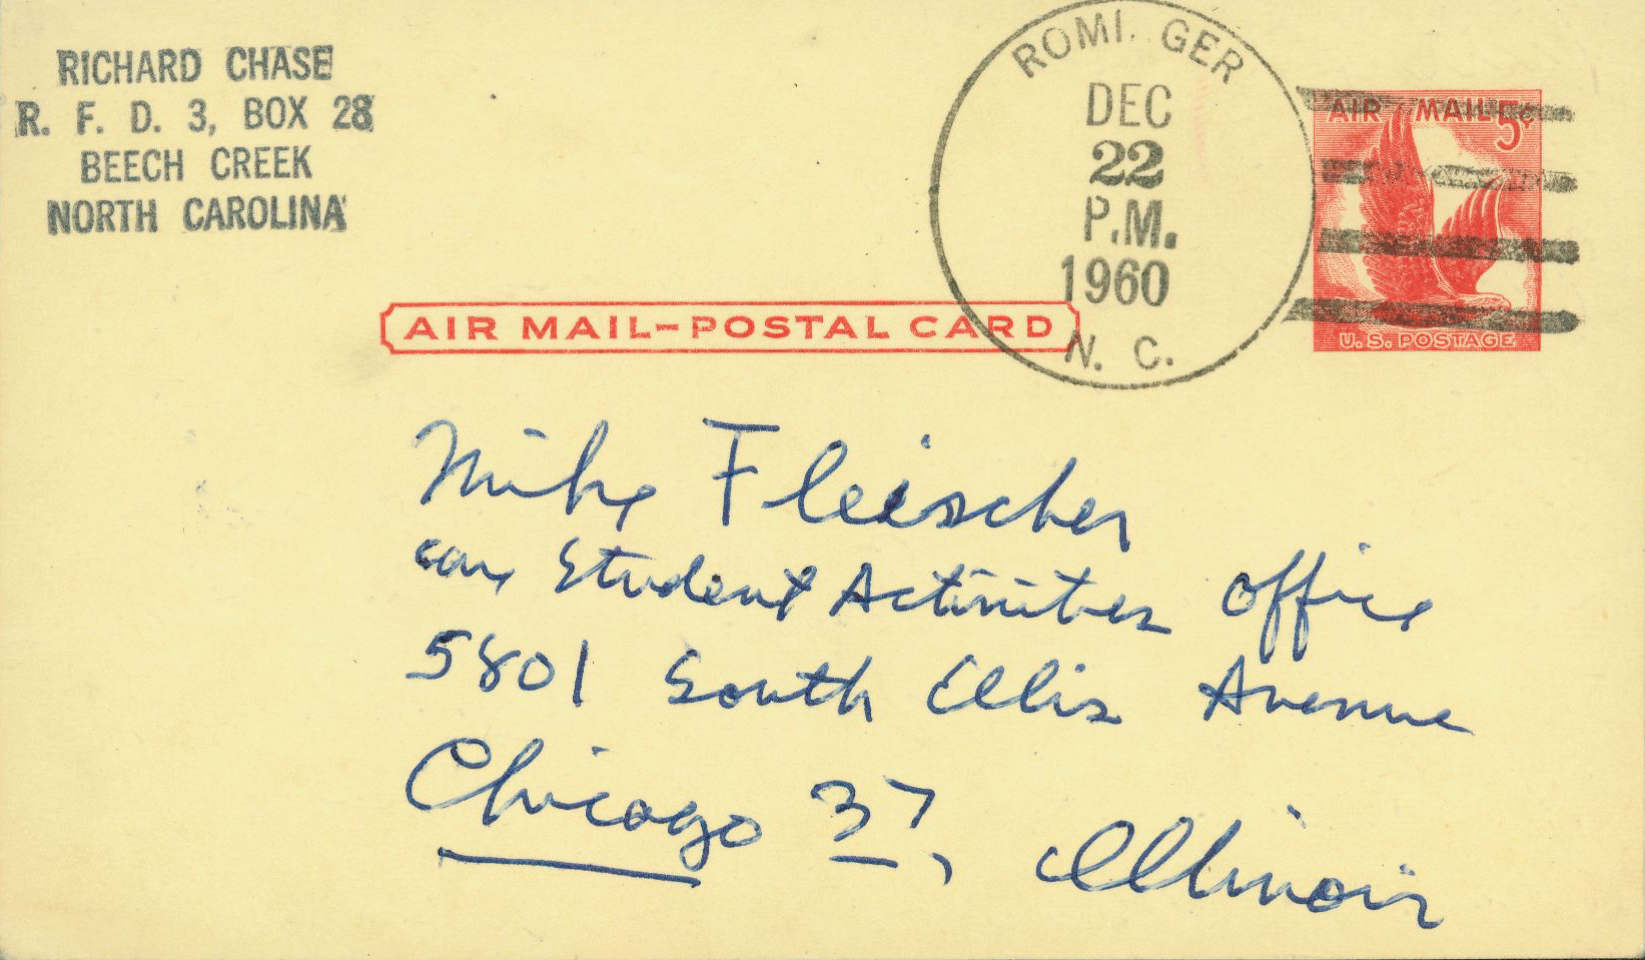 RICHARD CHASE
R. F. D. 3, BOX 28
BEECH CREEK
NORTH CAROLINA
ROMI. GER
DEC
22
P.M.
1960
N. C.
AIR MAIL 5¢
U.S. POSTAGE
AIR MAIL–POSTAL CARD
Mike Fleischer
care Student Activities Office
5801 South Ellis Avenue
Chicago 37, Illinois